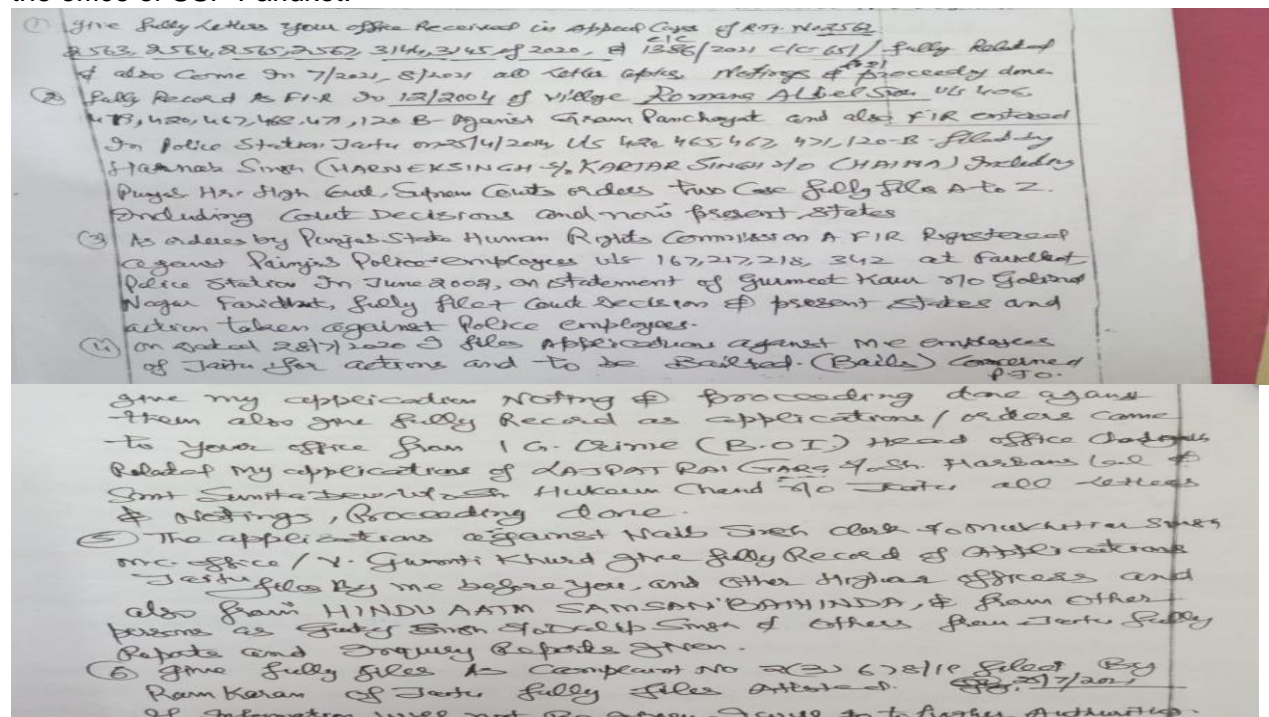 the office of SSP Faridkot.
① give fully Letters your office Received in Appeal Cases of RTI. No 2562
2563, 2564, 2565, 2567, 3144, 3145 of 2020, & 1386/2021 C/C 651/ fully Related
& also Come In 7/2021, 8/2021 all Letter Copies, Notings & proceeding done.
② fully Record As FIR No 12/2004 of village Romana Albel Singh U/s 406
420, 467, 468, 471, 120 B- Against Gram Panchayat and also FIR entered
In Police Station Jaitu on 25/4/2014 U/s 420 465, 467, 471, 120-B- filed by
Singh (HARNEKSINGH S/o KARTAR SINGH r/o (HAIMA) Including
Punjab Hr. High Court, Supram Courts orders two Case fully file A to Z.
Including Court Decisions and now present, states
③ As orders by Punjab State Human Rights Commission A FIR Registered
against Punjab Police employees U/s 167, 217, 218, 342 at Faridkot
Police Station In June 2009, on statement of Gurmeet Kaur r/o Gobind
Nagar Faridkot, fully file & Court Decision & present states and
action taken against Police employees.
④ on dated 28/7/2020 I files Applications against MC employees
of Jaitu for actions and to be (Bails) Concerned
P.T.O.
give my application Noting & proceeding done against
them also give fully Record as applications/orders came
to your office from I G. Crime (B.O.I) Head office
Related my applications of LAJPAT RAI GARG S/o Sh. Harbans Lal &
Smt Sunita Devi W/o Sh Hukam Chand r/o Jaitu all Letters
& Notings, Proceeding done.
⑤ The applications against Naib Singh Clerk S/o Mukhtiar Singh
MC. office / V. Gumti Khurd give fully Record of Applications
Jaitu files By me before you, and other Higher officers and
also from HINDU AATM SAMSAN BATHINDA, & from other
persons as Singh S/o Dalip Singh & others from Jaitu fully
Reports and Inquiry Reports given.
⑥ give fully files As Complaint No 678/18 filed By
Ram Karan of Jaitu fully files Attested. 25/7/2021
If Information will not be given, I to further Authorities.